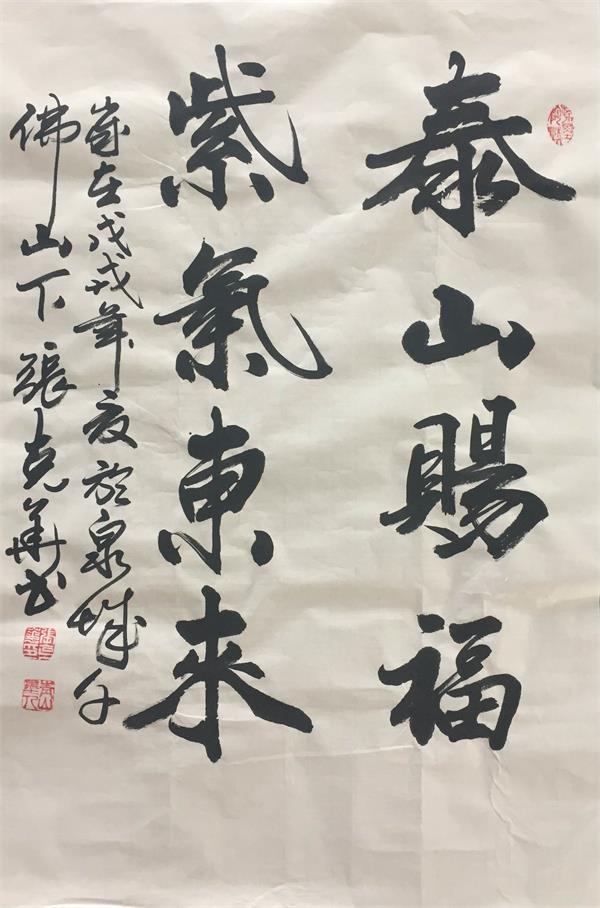 泰山賜福
紫氣東來
歲在戊戌年夏於泉城千
佛山下張克華书